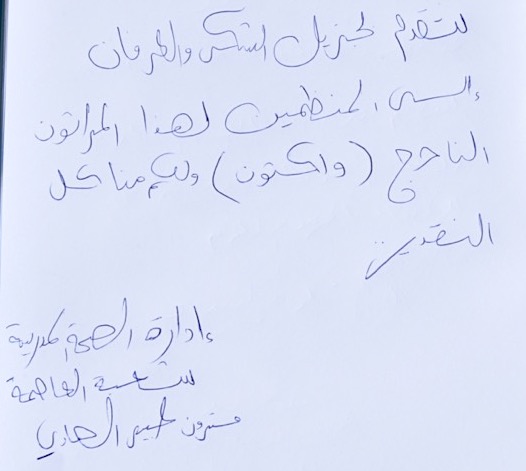 نتقدم بجزيل الشكر والعرفان
إلى المنظمين لهذا المراثون
الناجح (واكتون) ولكم منا كل
التقدير
إدارة الصحة المدرسية
شعبية العاصمة
الهادي